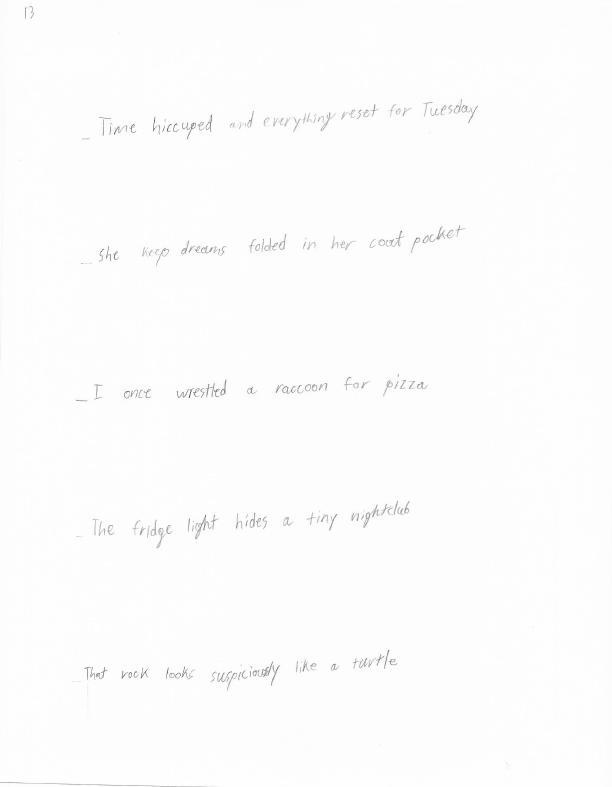 13
_ Time hiccuped and everything reset for Tuesday
_ She keep dreams folded in her coat pocket
_ I once wrestled a raccoon for pizza
_ The fridge light hides a tiny nightclub
_ That rock looks suspiciously like a turtle